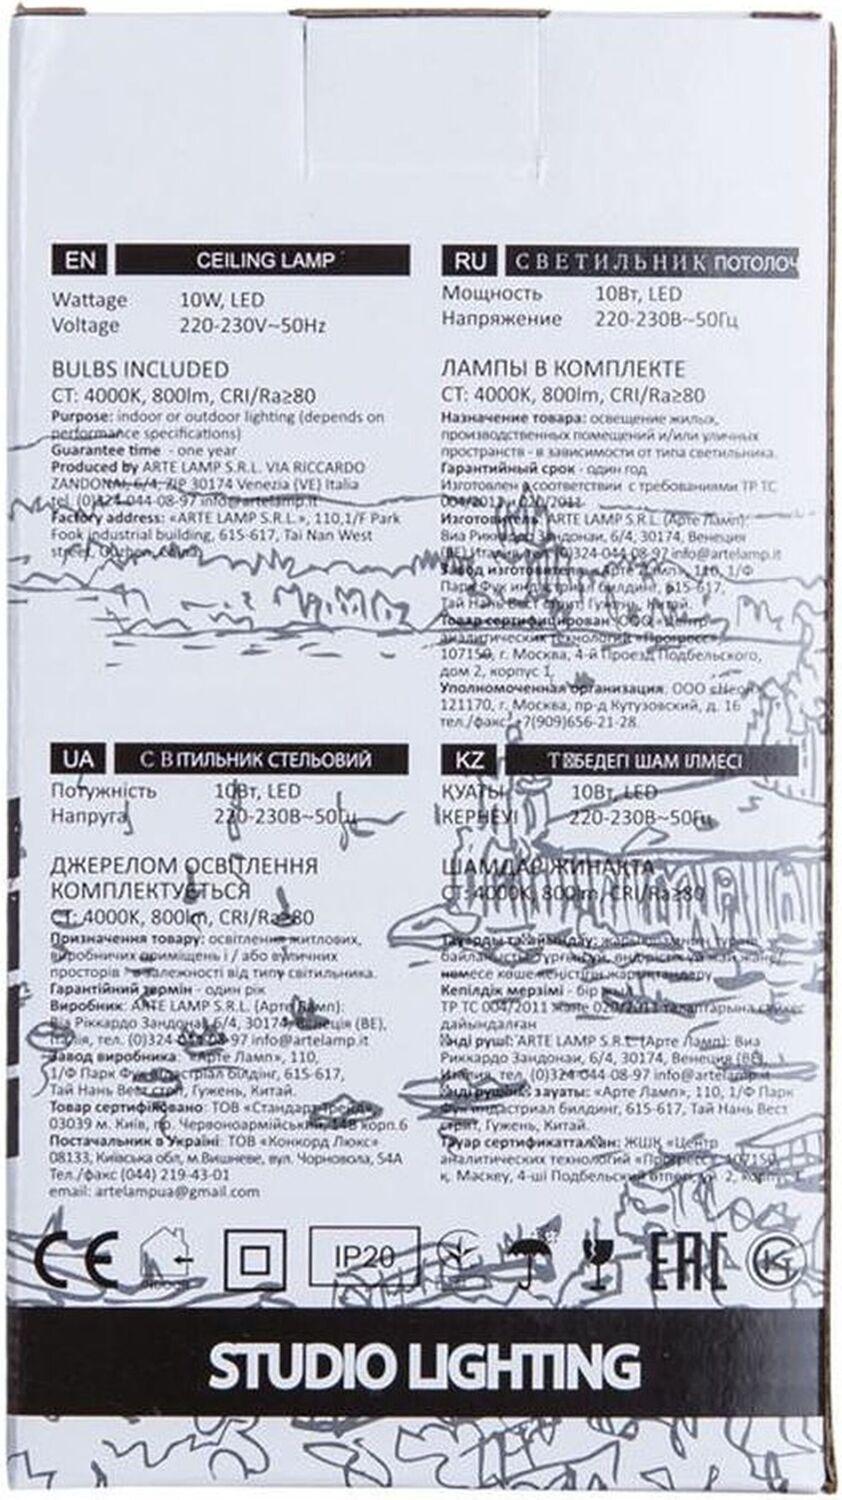 EN CEILING LAMP
Wattage 10W, LED
Voltage 220-230V~50Hz
BULBS INCLUDED
CT: 4000K, 800lm, CRI/Ra≥80
Purpose: indoor or outdoor lighting (depends on
performance specifications)
Guarantee time - one year
Produced by ARTE LAMP S.R.L. VIA RICCARDO
ZANDONAI, 6/4, ZIP 30174 Venezia (VE) Italia
tel. (0)324-044-08-97 info@artelamp.it
Factory address: «ARTE LAMP S.R.L.», 110,1/F Park
Fook industrial building, 615-617, Tai Nan West
street, Guzhen, China
RU СВЕТИЛЬНИК ПОТОЛОЧ
Мощность 10Вт, LED
Напряжение 220-230В~50Гц
ЛАМПЫ В КОМПЛЕКТЕ
CT: 4000K, 800lm, CRI/Ra≥80
Назначение товара: освещение жилых,
производственных помещений и/или уличных
пространств - в зависимости от типа светильника.
Гарантийный срок - один год
Изготовлен в соответствии с требованиями ТР ТС
004/2011 и 020/2011
Изготовитель: ARTE LAMP S.R.L. (Арте Ламп):
Виа Риккардо Зандонаи, 6/4, 30174, Венеция
(ВЕ), Италия, тел. (0)324-044-08-97 info@artelamp.it
Завод изготовитель: «Арте Ламп», 110, 1/Ф
Парк Фук индастриал билдинг, 615-617,
Тай Нань Вест стрит, Гужень, Китай.
Товар сертифицирован: ООО «Центр
аналитических технологий «Прогресс»
107150, г. Москва, 4-й Проезд Подбельского,
дом 2, корпус 1
Уполномоченная организация: ООО «Неон»
121170, г. Москва, пр-д Кутузовский, д. 16
тел./факс: +7(909)656-21-28
UA С ВІТИЛЬНИК СТЕЛЬОВИЙ
Потужність 10Вт, LED
Напруга 220-230В~50Гц
ДЖЕРЕЛОМ ОСВІТЛЕННЯ
КОМПЛЕКТУЄТЬСЯ
CT: 4000K, 800lm, CRI/Ra≥80
Призначення товару: освітлення житлових,
виробничих приміщень і / або вуличних
просторів - в залежності від типу світильника.
Гарантійний термін - один рік
Виробник: ARTE LAMP S.R.L. (Арте Ламп):
Віа Ріккардо Зандонаї, 6/4, 30174, Венеція (ВЕ),
Італія, тел. (0)324-044-08-97 info@artelamp.it
Завод виробника: «Арте Ламп», 110,
1/Ф Парк Фук індастріал білдінг, 615-617,
Тай Нань Вест стріт, Гужень, Китай.
Товар сертифіковано: ТОВ «Стандарт-Трейд»,
03039 м. Київ, пр. Червоноармійський, 14В корп.6
Постачальник в Україні: ТОВ «Конкорд Люкс»
08133, Київська обл, м.Вишневе, вул. Чорновола, 54А
Тел./факс (044) 219-43-01
email: artelampua@gmail.com
KZ ТӨБЕДЕГІ ШАМ ІЛМЕСІ
ҚУАТЫ 10Вт, LED
КЕРНЕУІ 220-230В~50Гц
ШАМДАР ЖИНАҚТА
CT: 4000K, 800lm, CRI/Ra≥80
Тауарды тағайындау:
Кепілдік мерзімі - бір жыл
ТР ТС 004/2011 және 020/2011 талаптарына сәйкес
дайындалған
Өндіруші: ARTE LAMP S.R.L. (Арте Ламп): Виа
Риккардо Зандонаи, 6/4, 30174, Венеция (ВЕ),
Италия, тел. (0)324-044-08-97 info@artelamp.it
зауаты: «Арте Ламп», 110, 1/Ф Парк
Фук индастриал билдинг, 615-617, Тай Нань Вест
стрит, Гужень, Китай.
Тауар сертификатталған: ЖШҚ «Центр
аналитических технологий «Прогресс», 107150,
қ. Мәскеу, 4-ші Подбельский 2,
CE IP20 EAC
STUDIO LIGHTING